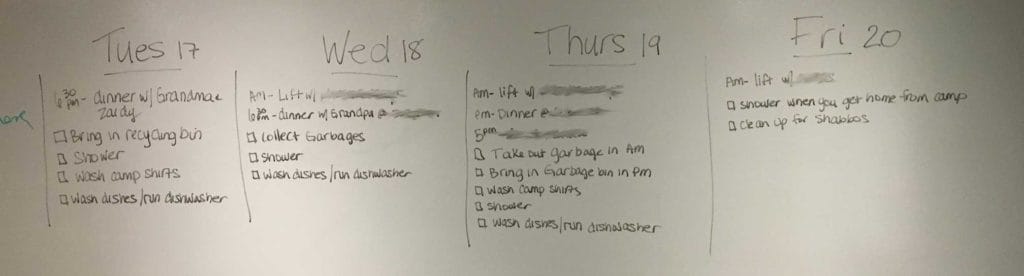 Tues 17
6:30 pm- dinner w/ Grandma &
Zaidy
☐ Bring in recycling bin
☐ Shower
☐ Wash camp shirts
☐ Wash dishes/run dishwasher
Wed 18
Am- Lift w/
6:30 pm-dinner w/ Grandpa @
☐ Collect Garbages
☐ Shower
☐ Wash dishes/run dishwasher
Thurs 19
Am- lift w/
pm- Dinner @
5pm
☐ Take out garbage in Am
☐ Bring in Garbage bin in Pm
☐ Wash camp shirts
☐ Shower
☐ Wash dishes/run dishwasher
Fri 20
Am- lift w/
☐ Shower when you get home from camp
☐ Clean up for Shabbos